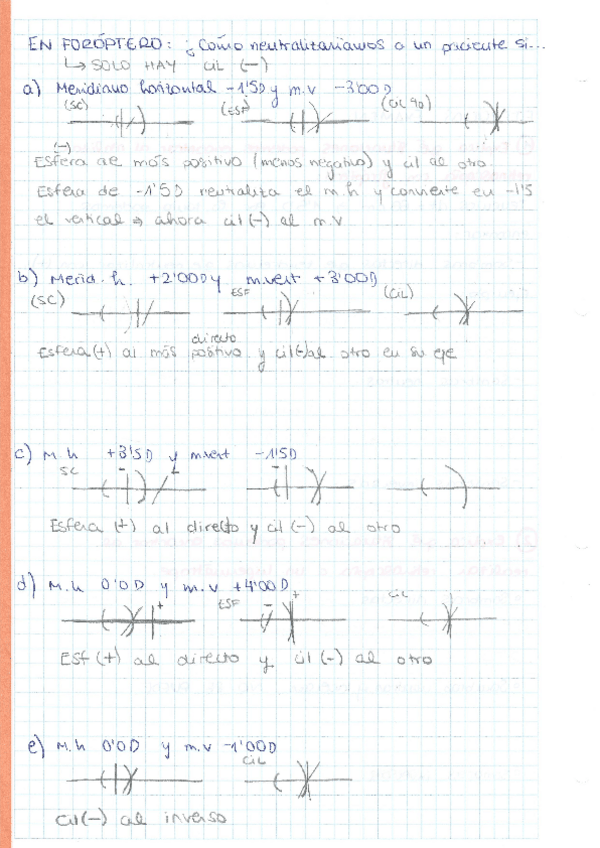 EN FORÓPTERO: ¿Cómo neutralizaríamos a un paciente si...
↳ SOLO HAY CIL (-)
a) Meridiano horizontal -1'5D y m.v -3'00D
(SC) (ESF) (CIL 90)
(-)
Esfera al más positivo (menos negativo) y cil al otro.
Esfera de -1'5D neutraliza el m.h y convierte en -1'5
el vertical → ahora cil(-) al m.v
b) Merid. h. +2'00D y m.vert +3'00D
(SC) ESF (CIL)
directo
Esfera(+) al más positivo y cil(-) al otro en su eje
c) M.h +3'5D y m.vert -1'5D
SC - + -
Esfera (+) al directo y cil (-) al otro
d) M.h 0'0D y m.v +4'00D
+ ESF - + CIL
ESF (+) al directo y cil (-) al otro
e) M.h 0'0D y m.v -1'00D
CIL
Cil(-) al inverso